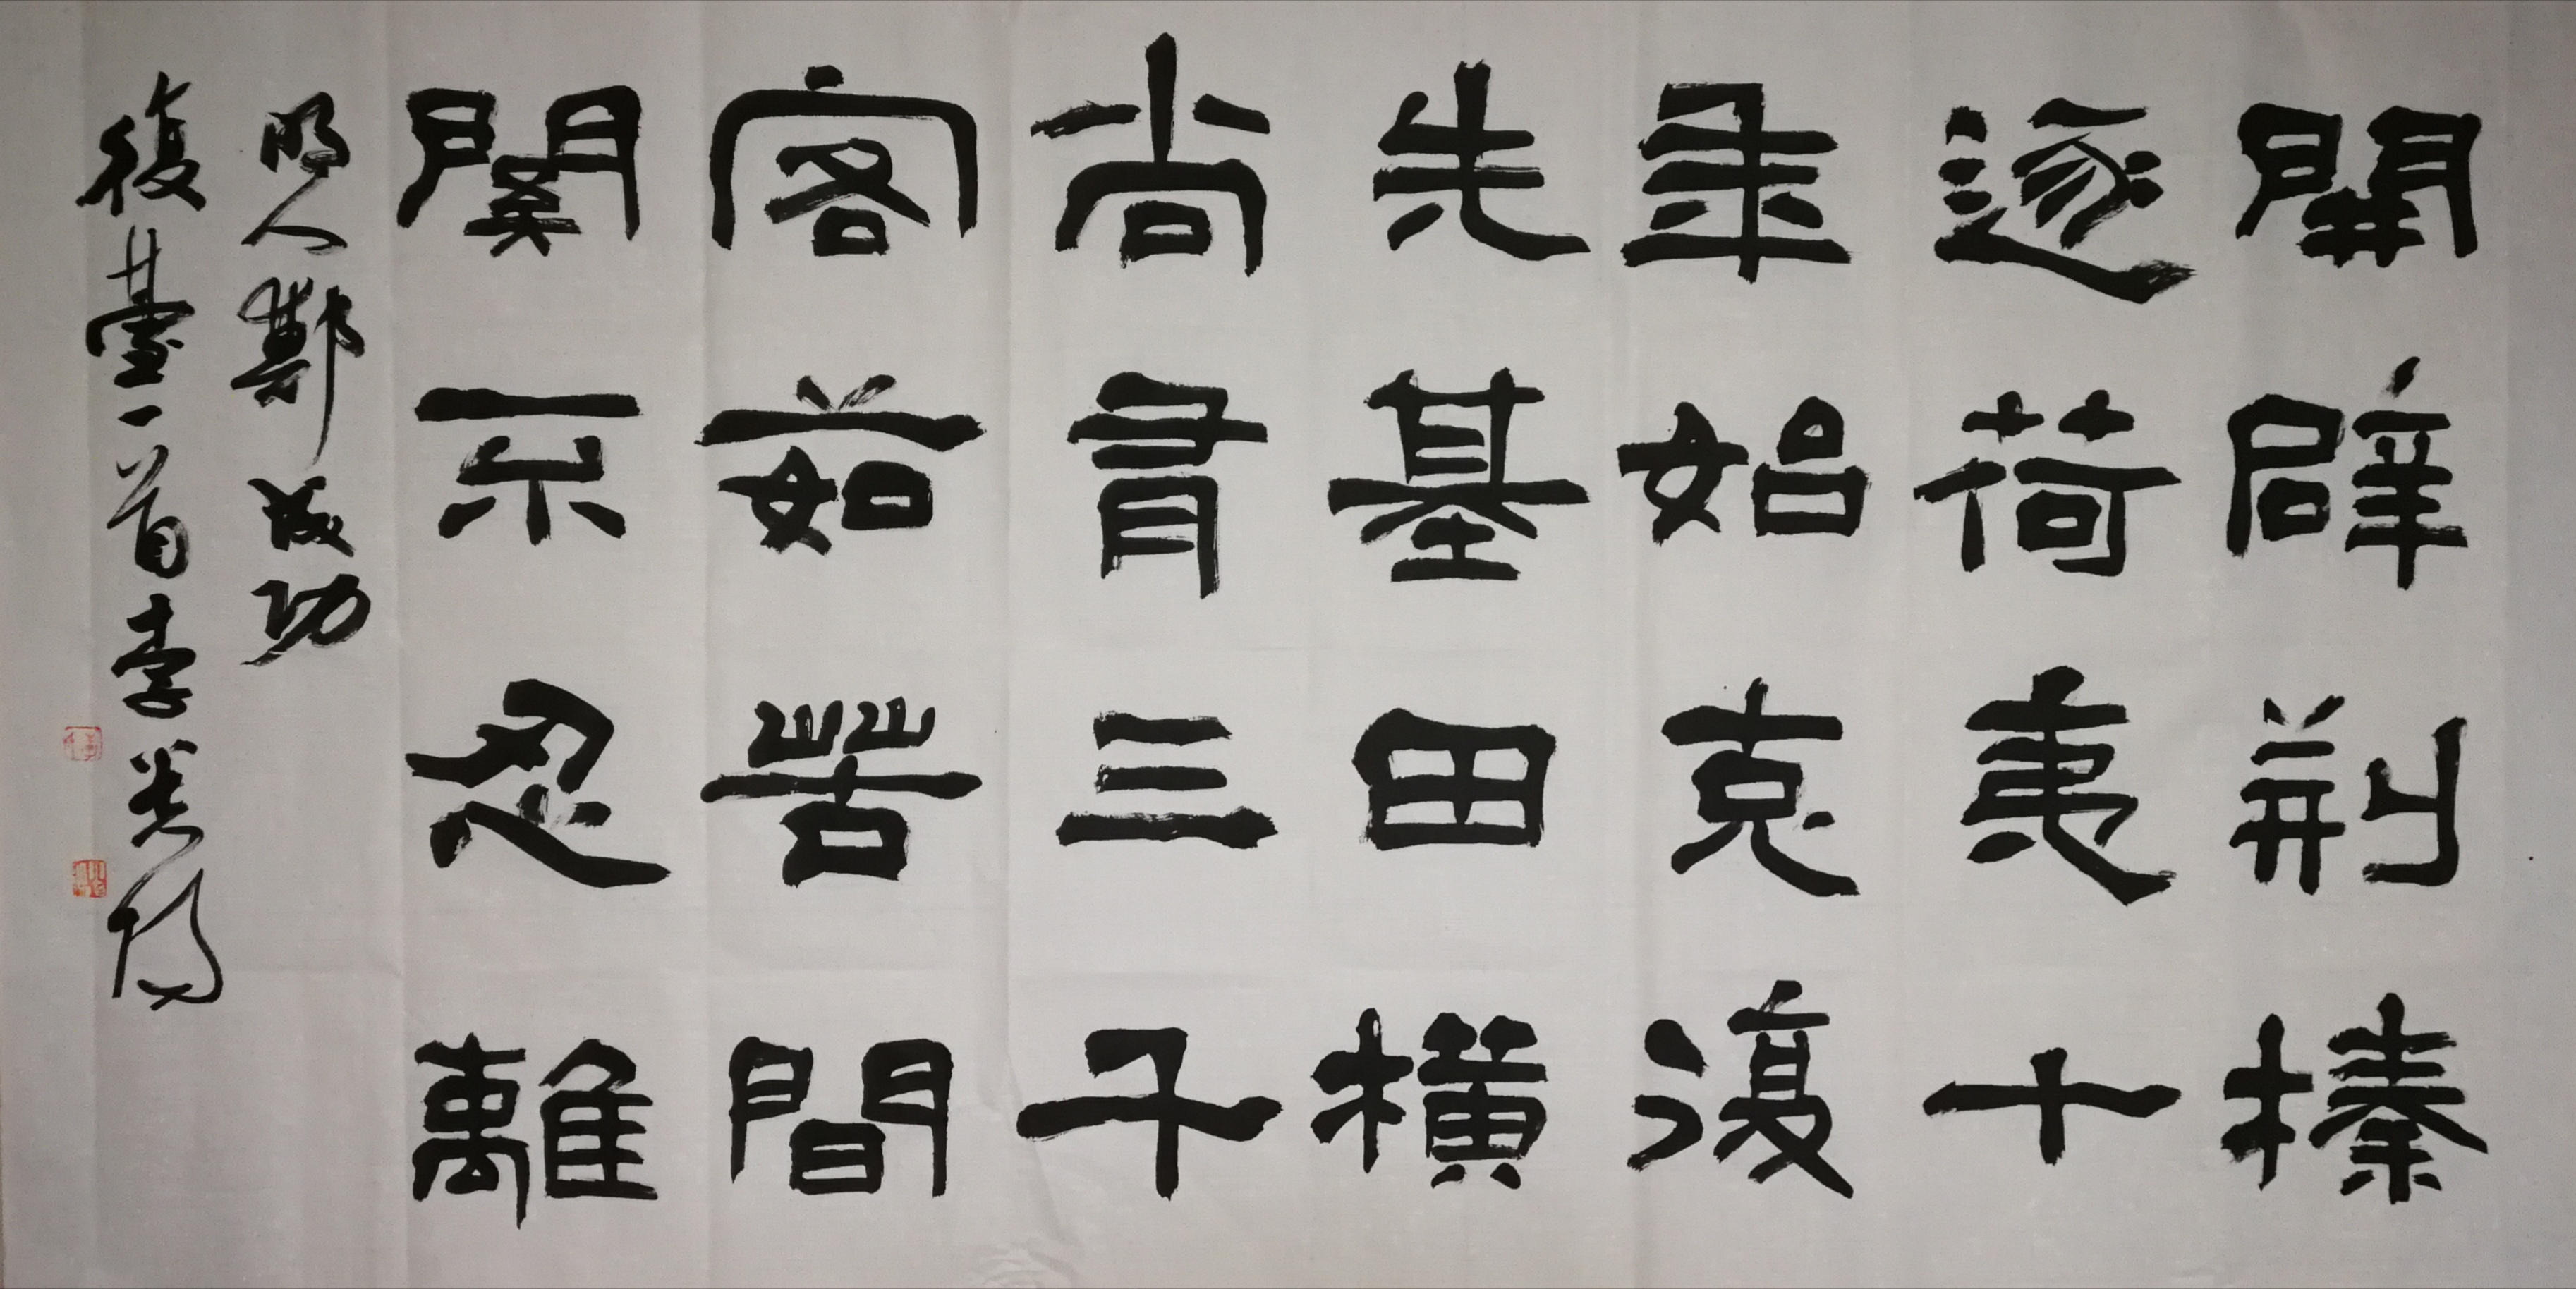 開辟荊榛
逐荷夷十
年始克復
先基田橫
尚有三千
客茹苦間
關不忍離
明人鄭成功
復臺一首李